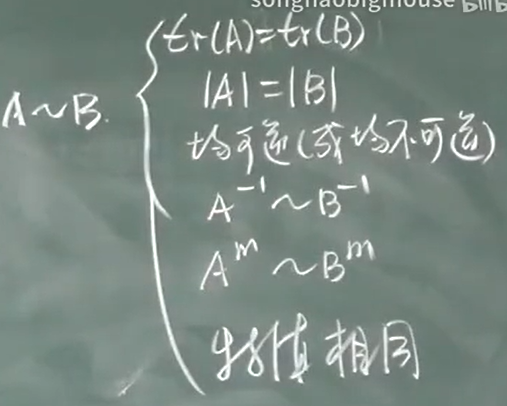 songhaobigmouse bilibili
A~B.
tr(A)=tr(B)
|A|=|B|
均可逆(或均不可逆)
A⁻¹~B⁻¹
Aᵐ~Bᵐ
特征值相同